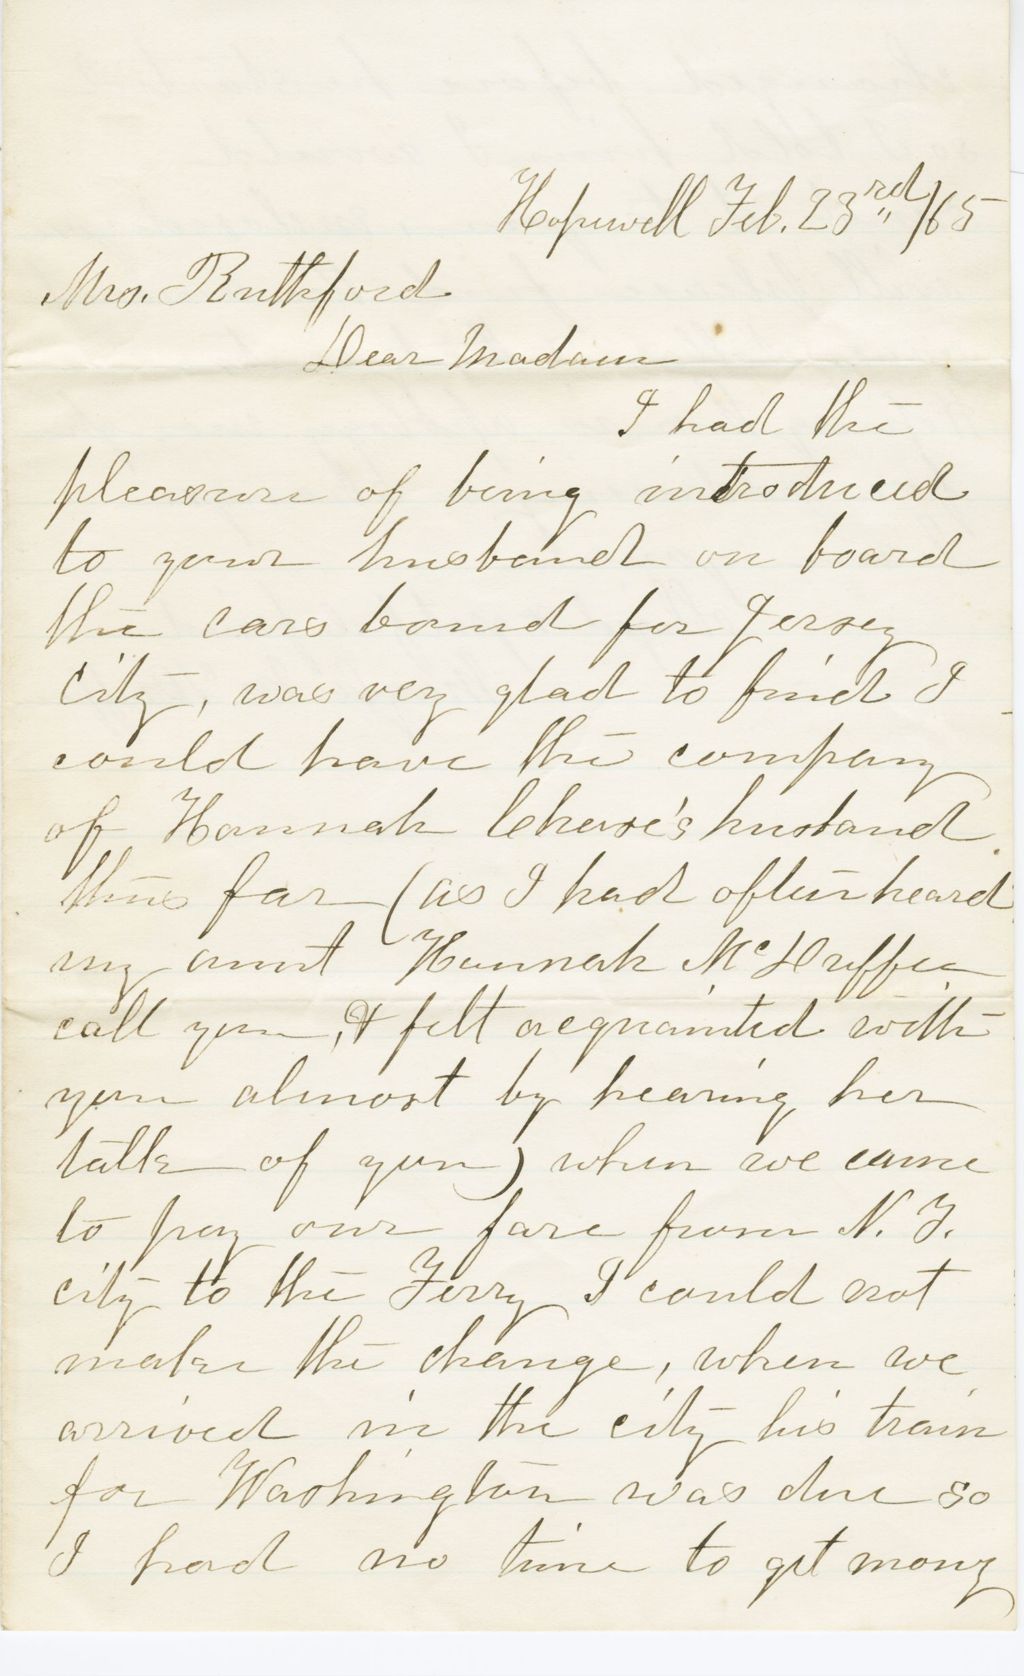 Hopewell Feb. 23rd /65
Mrs. Ruthford
Dear Madam
I had the
pleasure of being introduced
to your husband on board
the cars bound for Jersey
City, was very glad to find I
could have the company
of Hannah Chase's husband
thus far (as I had often heard
my aunt Hannah McDuffee
call you, & felt acquainted with
you almost by hearing her
talk of you) when we came
to pay our fare from N. Y.
city to the Ferry I could not
make the change, when we
arrived in the city his train
for Washington was due so
I had no time to get mony